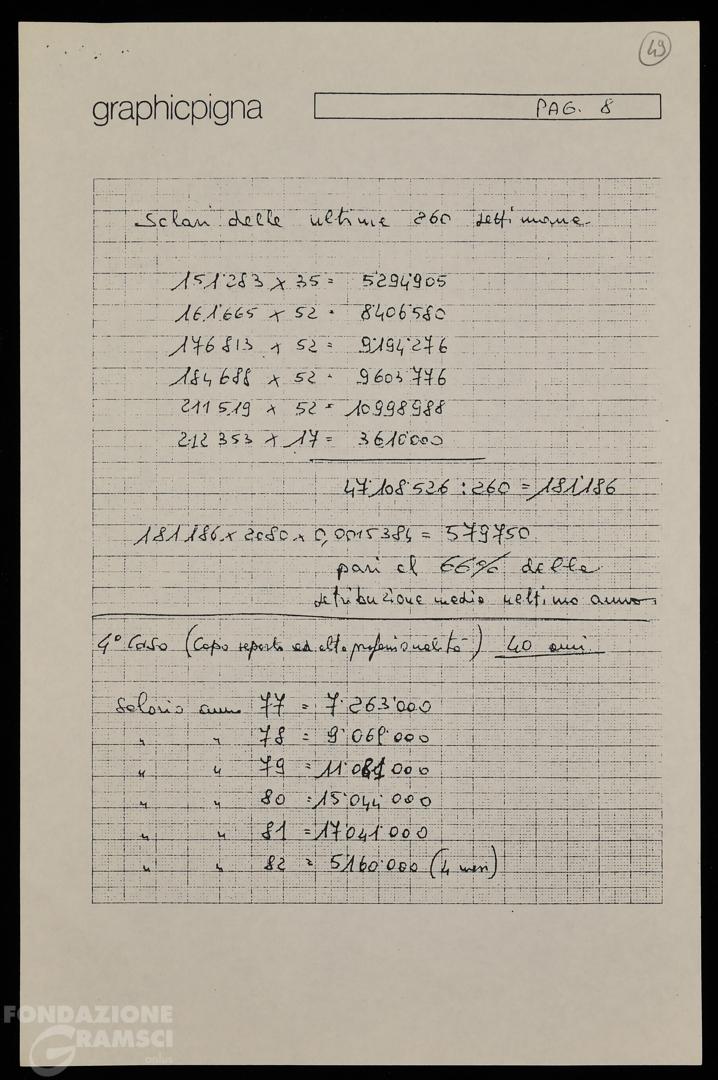 49
graphicpigna
PAG. 8
Salari delle ultime 260 settimane
151'283 x 35 = 5'294'905
161'665 x 52 = 8'406'580
176'813 x 52 = 9'194'276
184'688 x 52 = 9'603'776
211'519 x 52 = 10'998'988
212'353 x 17 = 3'610'000
47'108'526 : 260 = 181'186
181'186 x 2080 x 0,0015384 = 579'750
pari al 66% della
retribuzione media nell'ultimo anno
4° Caso (Capo reparto ad alta professionalità) 40 anni
Salario anno 77 = 7'263'000
" " 78 = 9'069'000
" " 79 = 11'081'000
" " 80 = 15'044'000
" " 81 = 17'041'000
" " 82 = 5'160'000 (4 mesi)
FONDAZIONE
GRAMSCI
onlus